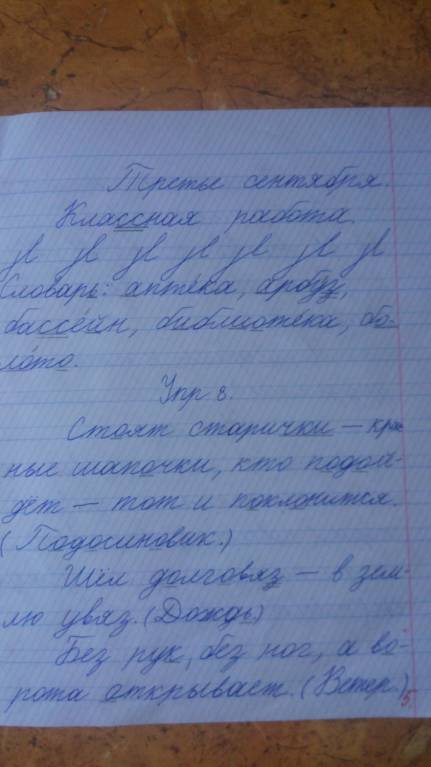 Третье сентября.
Классная работа.
Словарь: аптека, арбуз,
бассейн, библиотека, бо-
лото.
Упр 8.
Стоят старички – крас
ные шапочки, кто подой-
дёт – тот и поклонится.
(Подосиновик.)
Шёл долговяз – в зем-
лю увяз. (Дождь)
Без рук, без ног, а во-
рота открывает. (Ветер.)
5